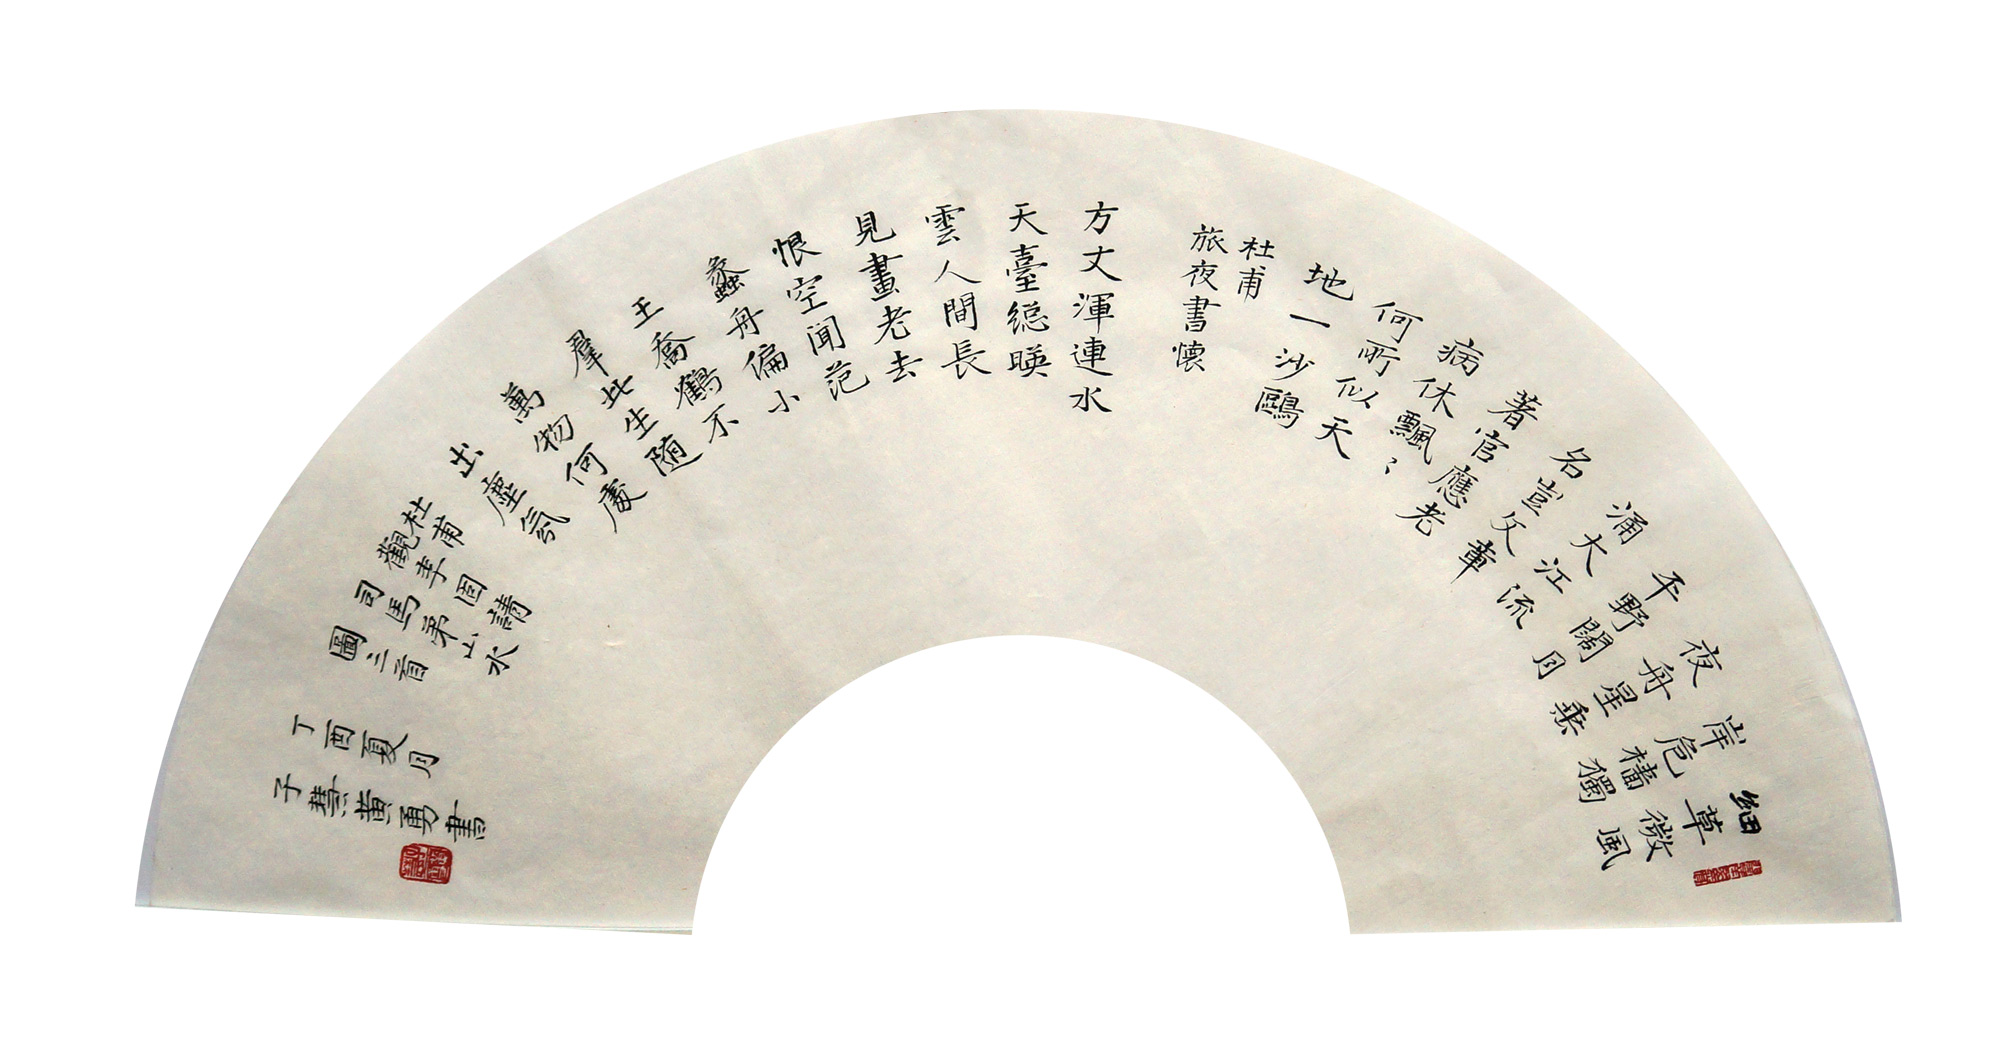 細草微風
岸危檣獨
夜舟星垂
平野闊月
涌大江流
名豈文章
著官應老
病休飄〻
何所似天
地一沙鷗
杜甫
旅夜書懷
方丈渾連水
天臺緫暎
雲人間長
見畫老去
恨空聞范
蠡舟偏小
王喬鶴不
羣此生隨
萬物何處
出塵氛
杜甫
觀李固請
司馬弟山水
圖三首
丁酉夏月
子慧黃勇書